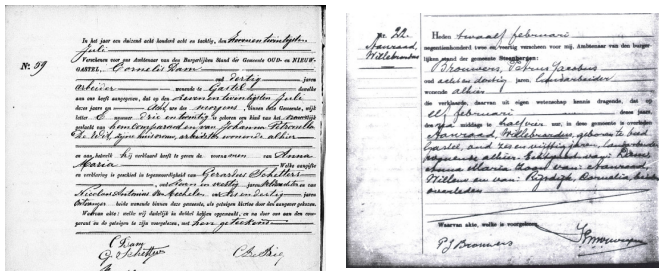 In het jaar een duizend acht honderd acht en tachtig, den zevenentwintigsten
Juli
Verscheen voor ons Ambtenaar van den Burgerlijken Stand der Gemeente OUD- en NIEUW-
GASTEL, Cornelis Dam
No. 59
oud dertig jaren
arbeider wonende te Gastel dewelke
aan ons heeft aangegeven, dat op den zevenentwintigsten Juli
dezes jaars ten acht ure des morgens, binnen deze Gemeente, wijk
letter C nummer drie en twintig is geboren een kind van het vrouwelijk
geslacht van hem comparand en van Johanna Petronella
De Wit, zijne huisvrouw, arbeidster wonende alhier
en aan hetwelk hij verklaard heeft te geven de voornamen van Anna
Maria. Welke aangifte
en verklaring is geschied in tegenwoordigheid van Gerardus Schetters
oud jaren en
Nicolaas Antonius Van Mechelen oud jaren
Ontvanger beide wonende binnen deze gemeente, als getuigen hiertoe door den aangever gekozen.
Waarvan akte; welke wij dadelijk in dubbel hebben opgemaakt, en na door ons aan den com-
parant en de getuigen te zijn voorgelezen, met hen geteekend.
C Dam
G Schetters
Nr. 22
Aanraad,
Willebrordus
Heden twaalf februari
negentienhonderd twee en veertig verscheen voor mij, Ambtenaar van den burger-
lijken stand der gemeente Steenbergen:
Brouwers, Petrus Jacobus
oud achten dertig jaren, landarbeider
wonende alhier
die verklaarde, daarvan uit eigen wetenschap kennis dragende, dat op
elf februari dezes jaars,
des middags te half vier uur, in deze gemeente is overleden:
Aanraad, Willebrordus, geboren te Oud
Gastel, oud zes en vijftig jaren, landarbeider
wonende alhier. Echtgenoot van:
Anna Maria. Zoon van: Aanraad,
en van: Rijsdijk, Cornelia, beiden
overleden
Waarvan akte, welke is voorgelezen.
P J Brouwers